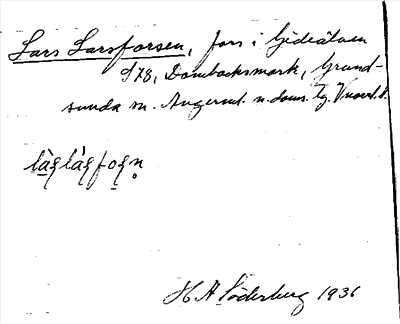 Lars Larsforsen, fors i Gideälven
S78, Dombäcksmark, Grund-
sunda sn. Ångerml. n. doms. tg. Vnorrl. l.
H A Söderberg 1936